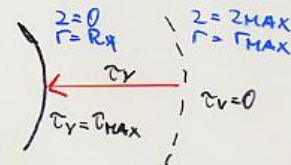 z=0
r=R*
z=z_MAX
r=r_MAX
τ_ν
τ_ν=0
τ_ν=τ_MAX